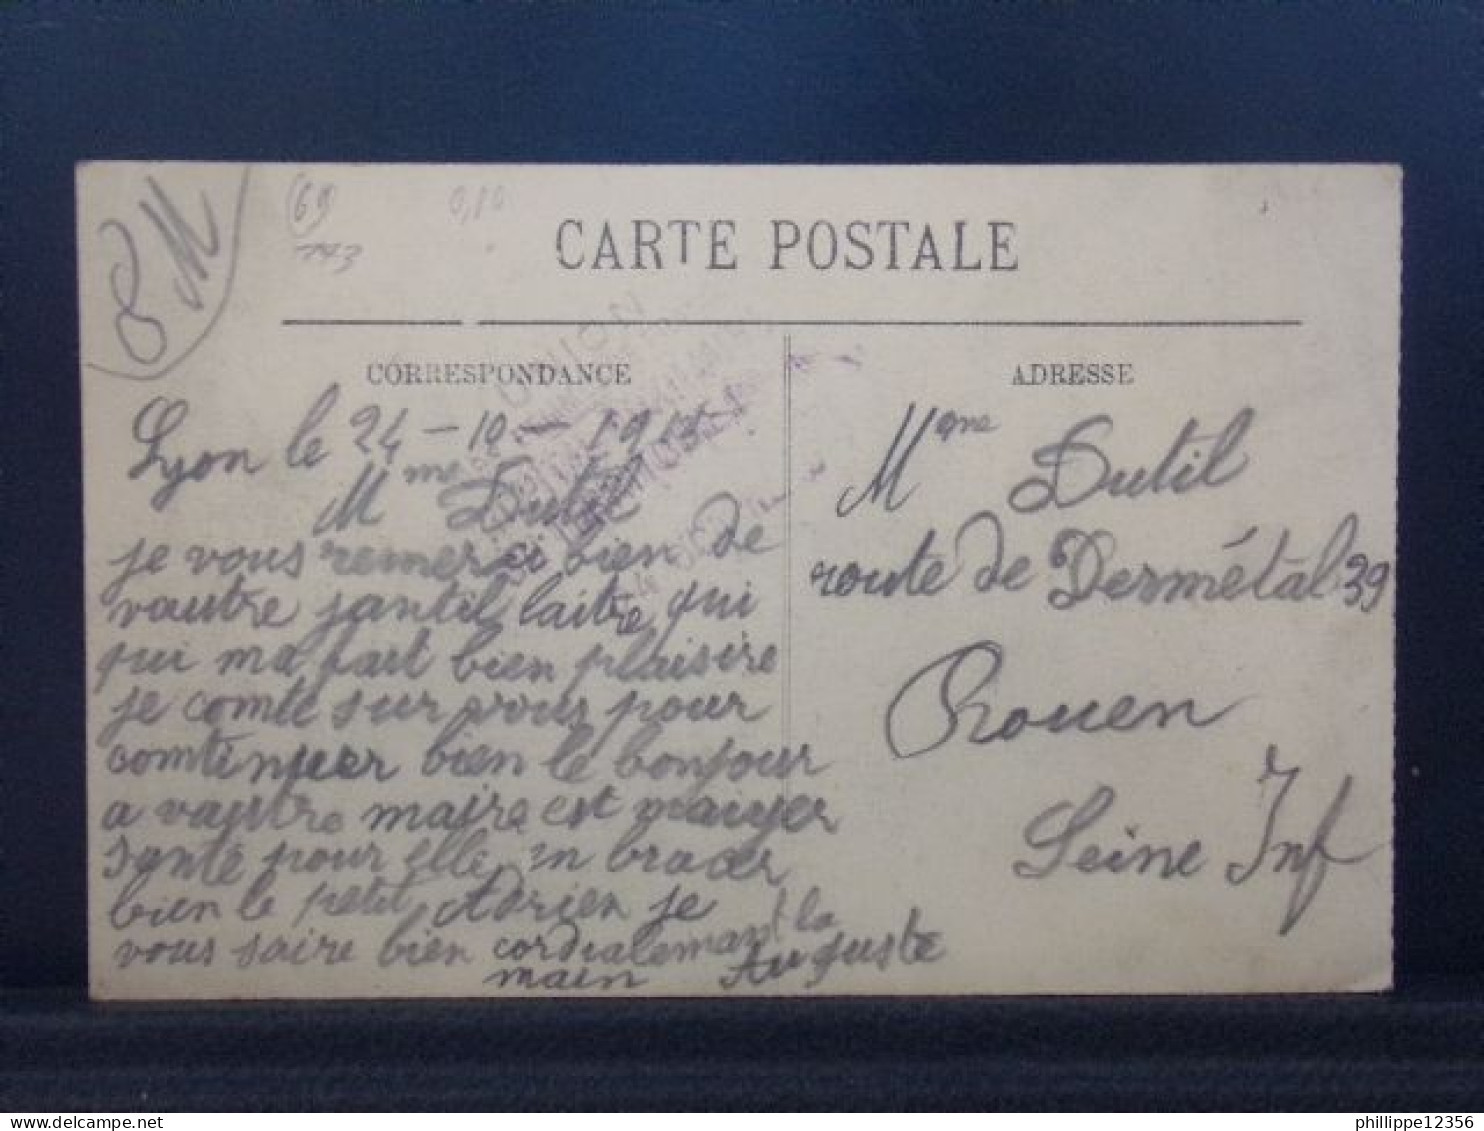 8M
69
743
0,10
CARTE POSTALE
CORRESPONDANCE
ADRESSE
UNION
Lyon le 24-10-1914
Mme Dutil
je vous remerci bien de
vautre jantil laitre qui
qui ma fait bien plaisire
je comte sur vous pour
comtinuer bien le bonjour
a vautre maire est mauyer
santé pour elle in bracer
bien le petit Adrien je
vous saire bien cordialeman la
main Auguste
Mme Dutil
route de Dermétal 39
Rouen
Seine Inf
phillippe12356